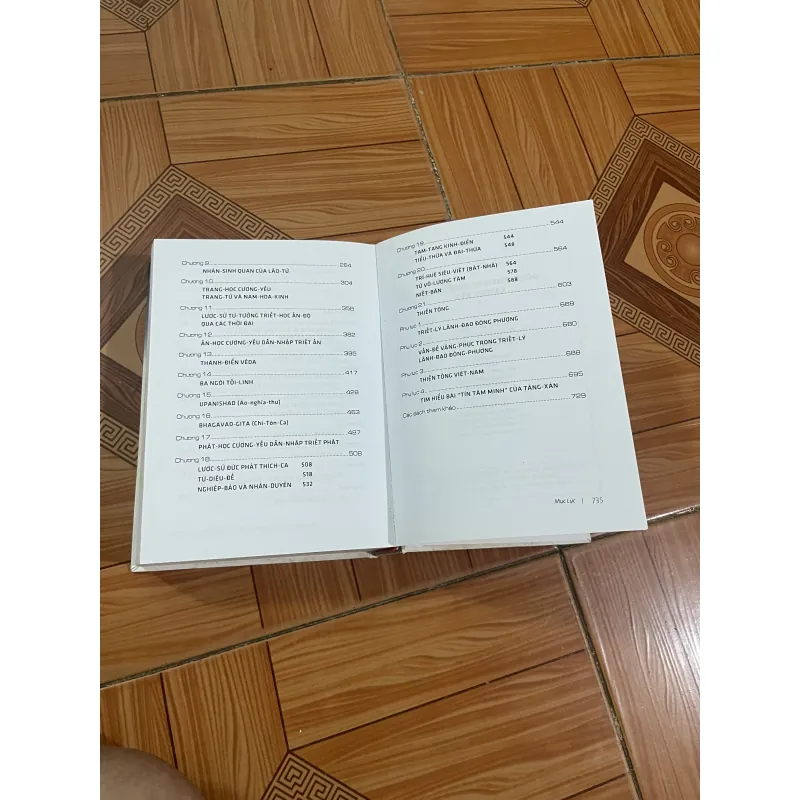 Chương 9 264
NHÂN-SINH QUAN CỦA LÃO-TỬ
Chương 10 304
TRANG-HỌC CƯƠNG-YẾU
TRANG-TỬ VÀ NAM-HOA-KINH
Chương 11 358
LƯỢC-SỬ TƯ-TƯỞNG TRIẾT-HỌC ẤN-ĐỘ
QUA CÁC THỜI ĐẠI
Chương 12 382
ẤN-HỌC CƯƠNG-YẾU DẪN-NHẬP TRIẾT ẤN
Chương 13 395
THÁNH-ĐIỂN VÉDA
Chương 14 417
BA NGÔI TỐI-LINH
Chương 15 428
UPANISHAD (Áo-nghĩa-thư)
Chương 16 463
BHAGAVAD-GITA (Chí-Tôn-Ca)
Chương 17 487
PHẬT-HỌC CƯƠNG-YẾU DẪN-NHẬP TRIẾT PHẬT
Chương 18 508
LƯỢC-SỬ ĐỨC PHẬT THÍCH-CA 508
TỨ-DIỆU-ĐẾ 518
NGHIỆP-BÁO VÀ NHÂN-DUYÊN 532
Chương 19 544
TAM-TẠNG KINH-ĐIỂN 544
TIỂU-THỪA VÀ ĐẠI-THỪA 548
Chương 20 564
TRÍ-HUỆ SIÊU-VIỆT (BÁT-NHÃ) 564
TỨ VÔ-LƯỢNG TÂM 578
NIẾT-BÀN 588
Chương 21 603
THIỀN TÔNG
Phụ lục 1 669
TRIẾT-LÝ LÃNH-ĐẠO ĐÔNG PHƯƠNG
Phụ lục 2 680
VẤN-ĐỀ VÀNG-PHỤC TRONG TRIẾT-LÝ
LÃNH-ĐẠO ĐÔNG-PHƯƠNG
Phụ lục 3 688
THIỀN TÔNG VIỆT-NAM
Phụ lục 4 695
TÌM HIỂU BÀI "TÍN TÂM MINH" CỦA TĂNG-XÁN
Các sách tham khảo 729
Mục Lục | 735